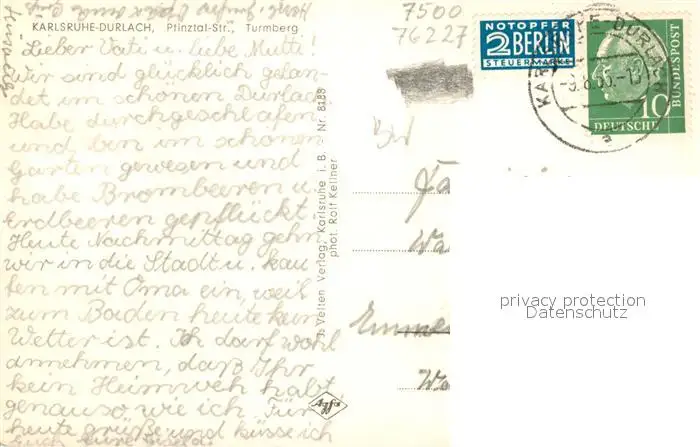 KARLSRUHE-DURLACH, Pfinztal-Str., Turmberg
Lieber Vati u. liebe Mutti!
Wir sind glücklich gelan-
det im schönen Durlach
Habe durchgeschlafen
und bin im schönen
Garten gewesen und
habe Brombeeren u.
Erdbeeren gepflückt.
Heute Nachmittag gehn
wir in die Stadt u. kau-
fen mit Oma ein, weil
zum Baden heute kein
Wetter ist. Ich darf wohl
annehmen, daß Ihr
kein Heimweh habt,
genauso wie ich. Für
heute grüße und küsse ich
Euch Eure
J. Velten Verlag, Karlsruhe i. B. - Nr. 8188
phot. Rolf Kellner
Agfa
7500
76227
NOTOPFER
2 BERLIN
STEUERMARKE
KARLSRUHE-DURLACH
a
10
DEUTSCHE
BUNDESPOST
Fa
Wa
Emme
privacy protection
Datenschutz